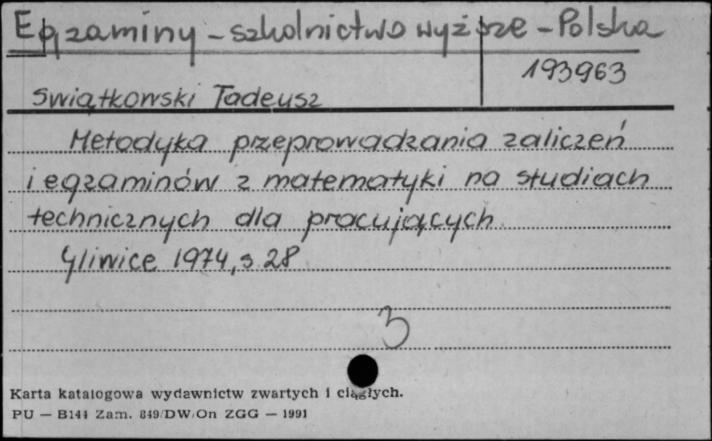 Egzaminy - szkolnictwo wyższe - Polska
193963
Świątkowski Tadeusz
Metodyka przeprowadzania zaliczeń
i egzaminów z matematyki na studiach
technicznych dla pracujących
Gliwice 1974, s 28
3
Karta katalogowa wydawnictw zwartych i ciągłych.
PU — B144 Zam. 849/DW/On ZGG — 1991